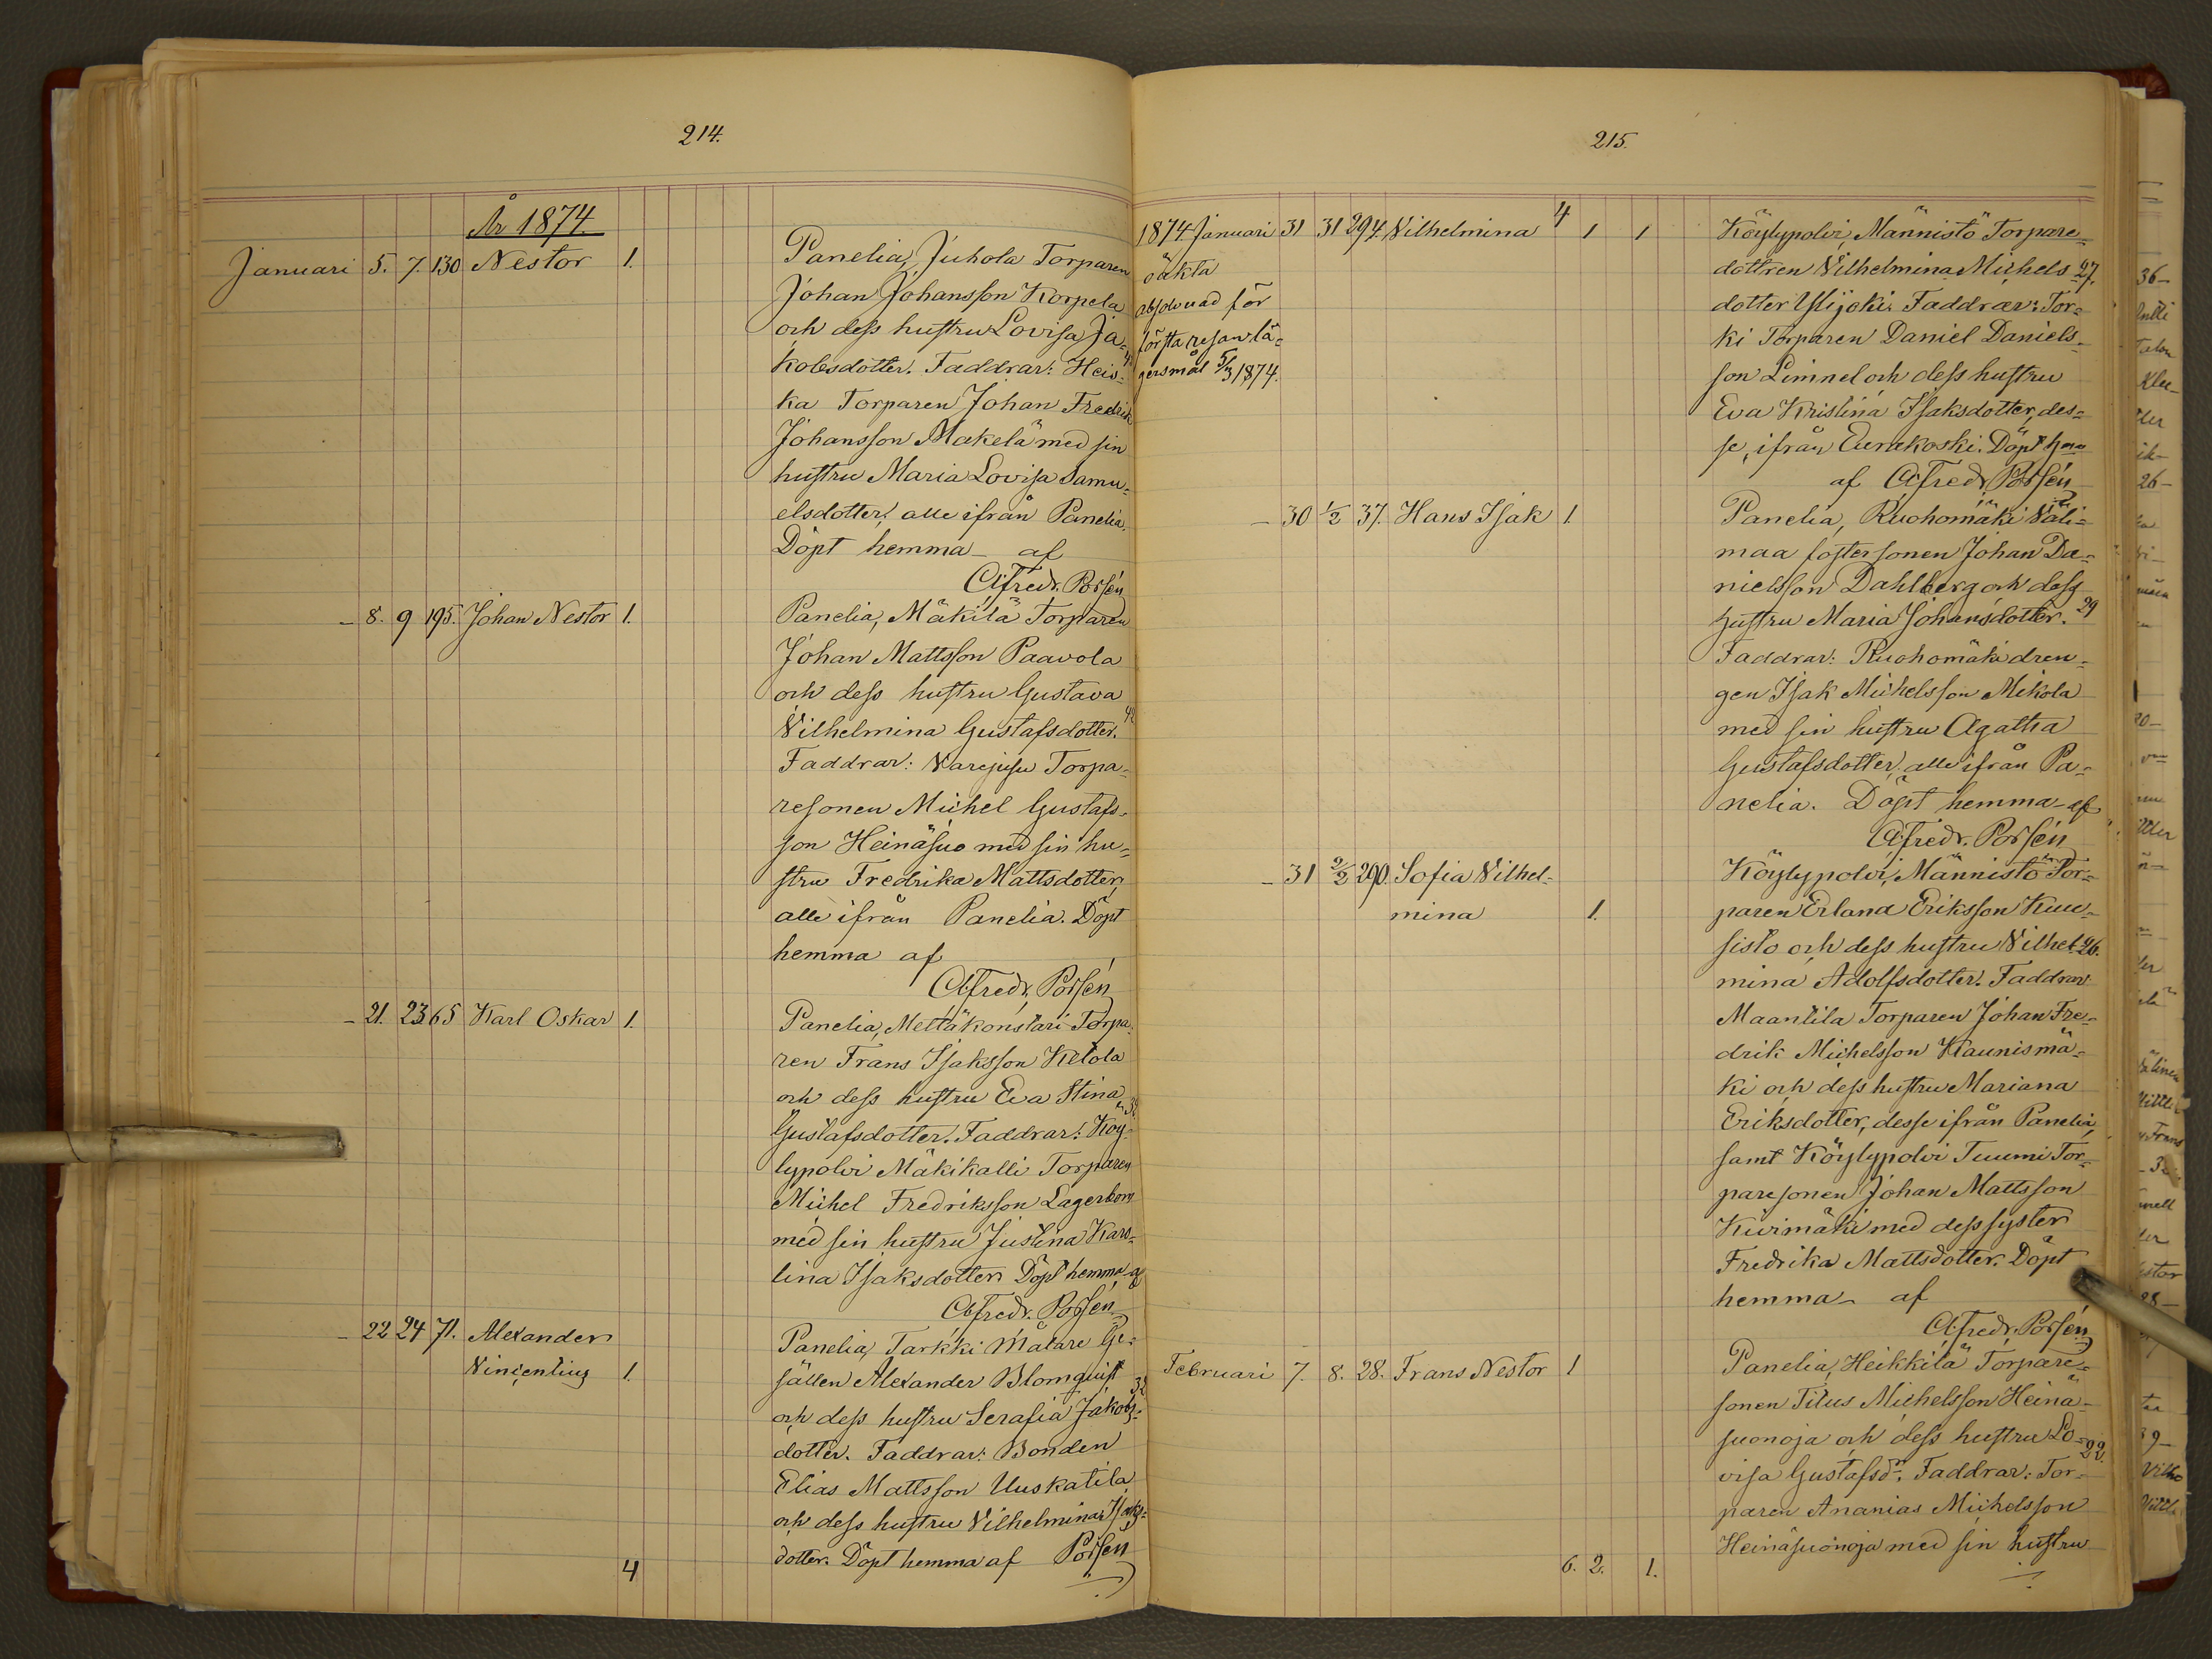 214.
År 1874.
Januari 5. 7. 130 Nestor 1.
Panelia, Juhola Torparen
Johan Johansson Korpela
och dess hustru Lovisa Ja-
kobsdotter. Faddrar: Heis-
ka Torparen Johan Fredrik
Johansson Makelä med sin
hustru Maria Lovisa Samu-
elsdotter, alle ifrån Panelia.
Döpt hemma af
Alfredr. Porsén
- 8. 9 195. Johan Nestor 1.
Panelia, Mäkilä Torparen
Johan Mattsson Paavola
och dess hustru Gustava
Vilhelmina Gustafsdotter. 42
Faddrar: Varejusu Torpa-
resonen Michel Gustafs-
son Heinäsuo med sin hu-
stru Fredrika Mattsdotter,
alle ifrån Panelia. Döpt
hemma af
Alfredr. Porsén
- 21. 23 65 Karl Oskar 1.
Panelia, Mettäkonstari Torpa-
ren Frans Isaksson Ketola
och dess hustru Eva Stina
Gustafsdotter. Faddrar: Köy-
lypolvi Mäkikalli Torparen
Michel Fredriksson Lagerbom
med sin hustru Justina Karo-
lina Isaksdotter. Döpt hemma af
Alfredr. Porsén
- 22 24 71. Alexander
Vincentius 1.
Panelia, Tarkki Målare Ge-
sällen Alexander Blomquist 32
och dess hustru Serafia Jakobs-
dotter. Faddrar: Bonden
Elias Mattsson Uuskatila
och dess hustru Vilhelmina Isaks-
dotter. Döpt hemma af Porsén
4
215.
1874 Januari 31 31 294. Vilhelmina 4 1 1
oäkta
absolverad för
första resan lä-
gersmål 5/3 1874.
Köylypolvi, Männistö Torpare-
dottren Vilhelmina Michels 27.
dotter Ylijoki. Faddrar: Tor-
ki Torparen Daniel Daniels-
son Limnel och dess hustru
Eva Kristina Isaksdotter, des-
se, ifrån Eurakoski. Döpt hma
af Alfredr. Porsén
- 30 1/2 37. Hans Isak 1.
Panelia, Ruohomäki Väli-
maa fostersonen Johan Da-
nielsson Dahlberg och dess
hustru Maria Johansdotter. 29
Faddrar: Ruohomäki dren-
gen Isak Michelsson Mikola
med sin hustru Agatha
Gustafsdotter, alle ifrån Pa-
nelia. Döpt hemma af
Alfredr. Porsén
- 31 2/2 290. Sofia Vilhel-
mina 1.
Köylypolvi, Männistö Tor-
paren Erland Eriksson Kuu-
sisto och dess hustru Vilhel- 26.
mina Adolfsdotter. Faddrar
Maantila Torparen Johan Fre-
drik Michelsson Kaunismä-
ki och dess hustru Mariana
Eriksdotter, desse ifrån Panelia,
samt Köylypolvi Tuumi Tor-
paresonen Johan Mattsson
Kivimäki med dess syster
Fredrika Mattsdotter. Döpt
hemma af
Alfredr. Porsén
Februari 7. 8. 28. Frans Nestor 1
Panelia, Heikkilä Torpare-
sonen Titus Michelsson Heinä-
suonoja och dess hustru Lo- 22.
visa Gustafsdr. Faddrar: Tor-
paren Ananias Michelsson
Heinäsuonoja med sin hustru
6. 2. 1.